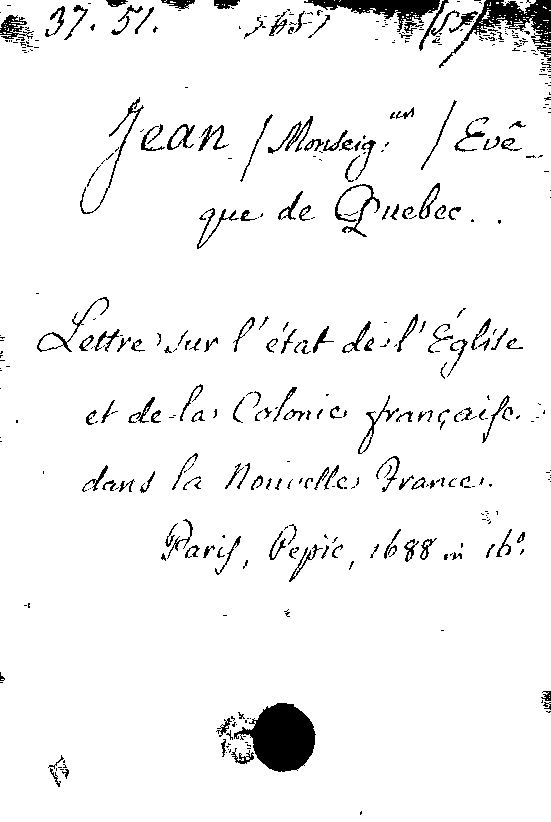 37. 51. 5687 (S5)
Jean / Monseig.eur / Evê
que de Quebec.
Lettre sur l'état de l'Église
et de la Colonie françaiſe
dans la Nouvelle France.
Pariſ, Pepie, 1688 in 16º.